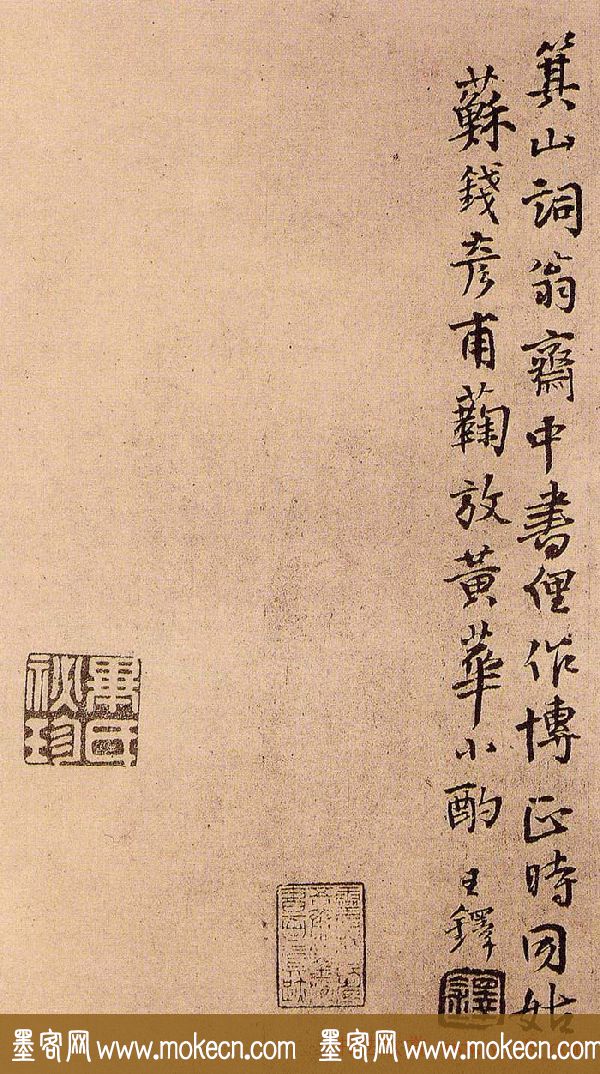 箕山詞翁齋中書俚作博正時同姑
蘇錢彥甫蘜放黃華小酌 王鐸
墨客网 www.mokecn.com 墨客网 www.mokecn.com